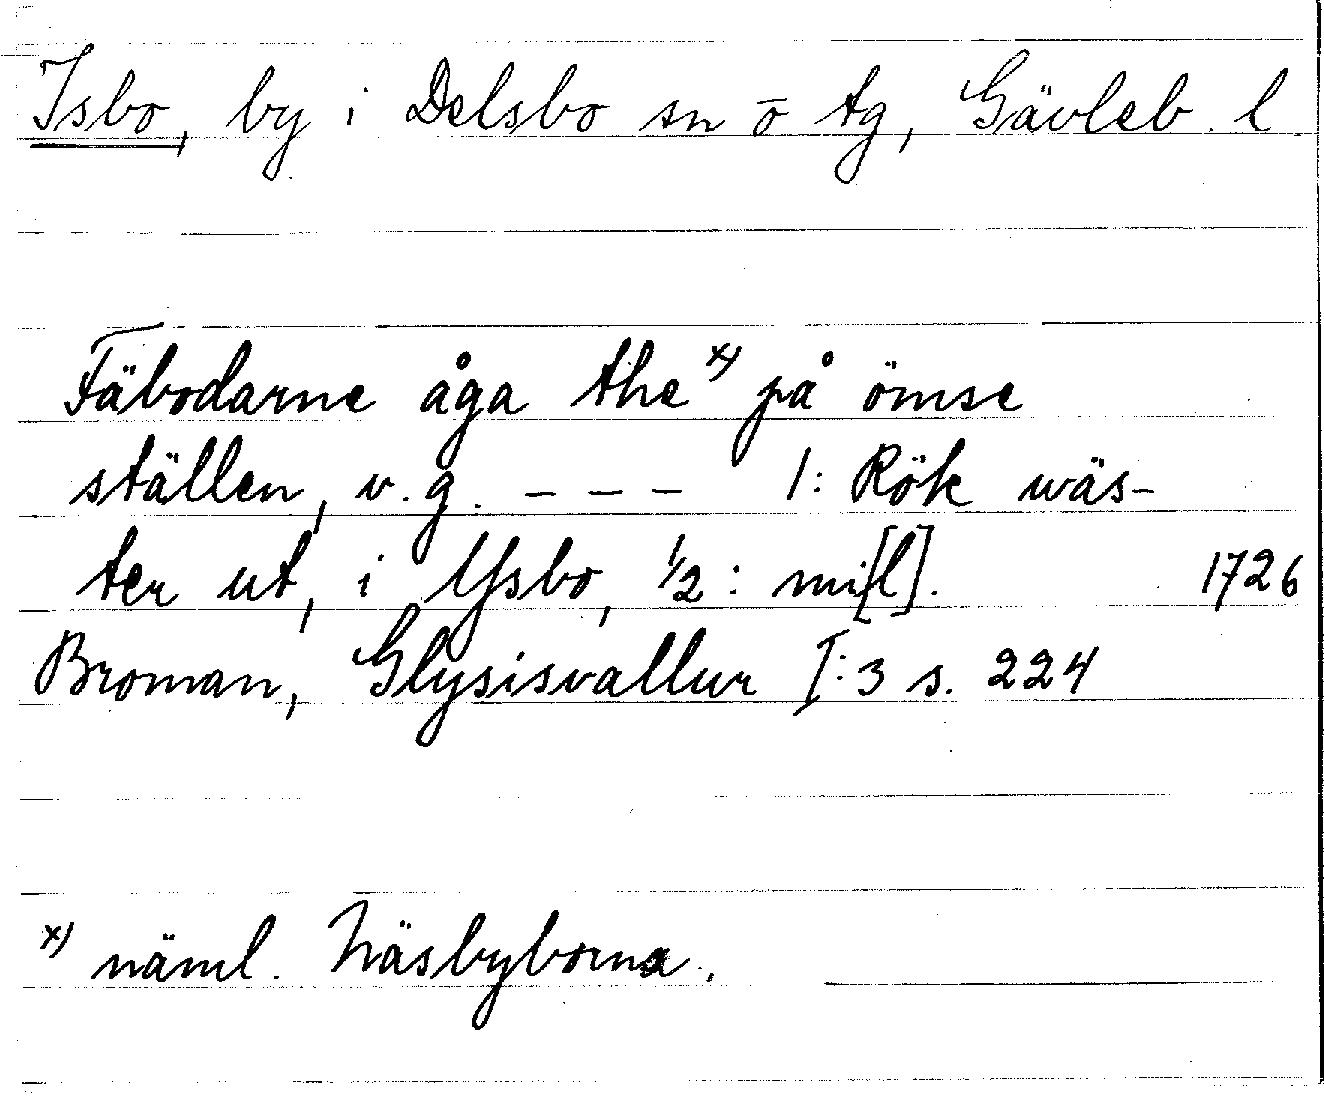 Isbo, by i Delsbo sn o tg, Gävleb. l
Fäbodarne åga the x) på ömse
ställen, v.g. - - - 1: Rök wäs-
ter ut, i Ysbo, 1/2: mi[l]. 1726
Broman, Glysisvallur I:3 s. 224
x) näml. Näsbyborna.